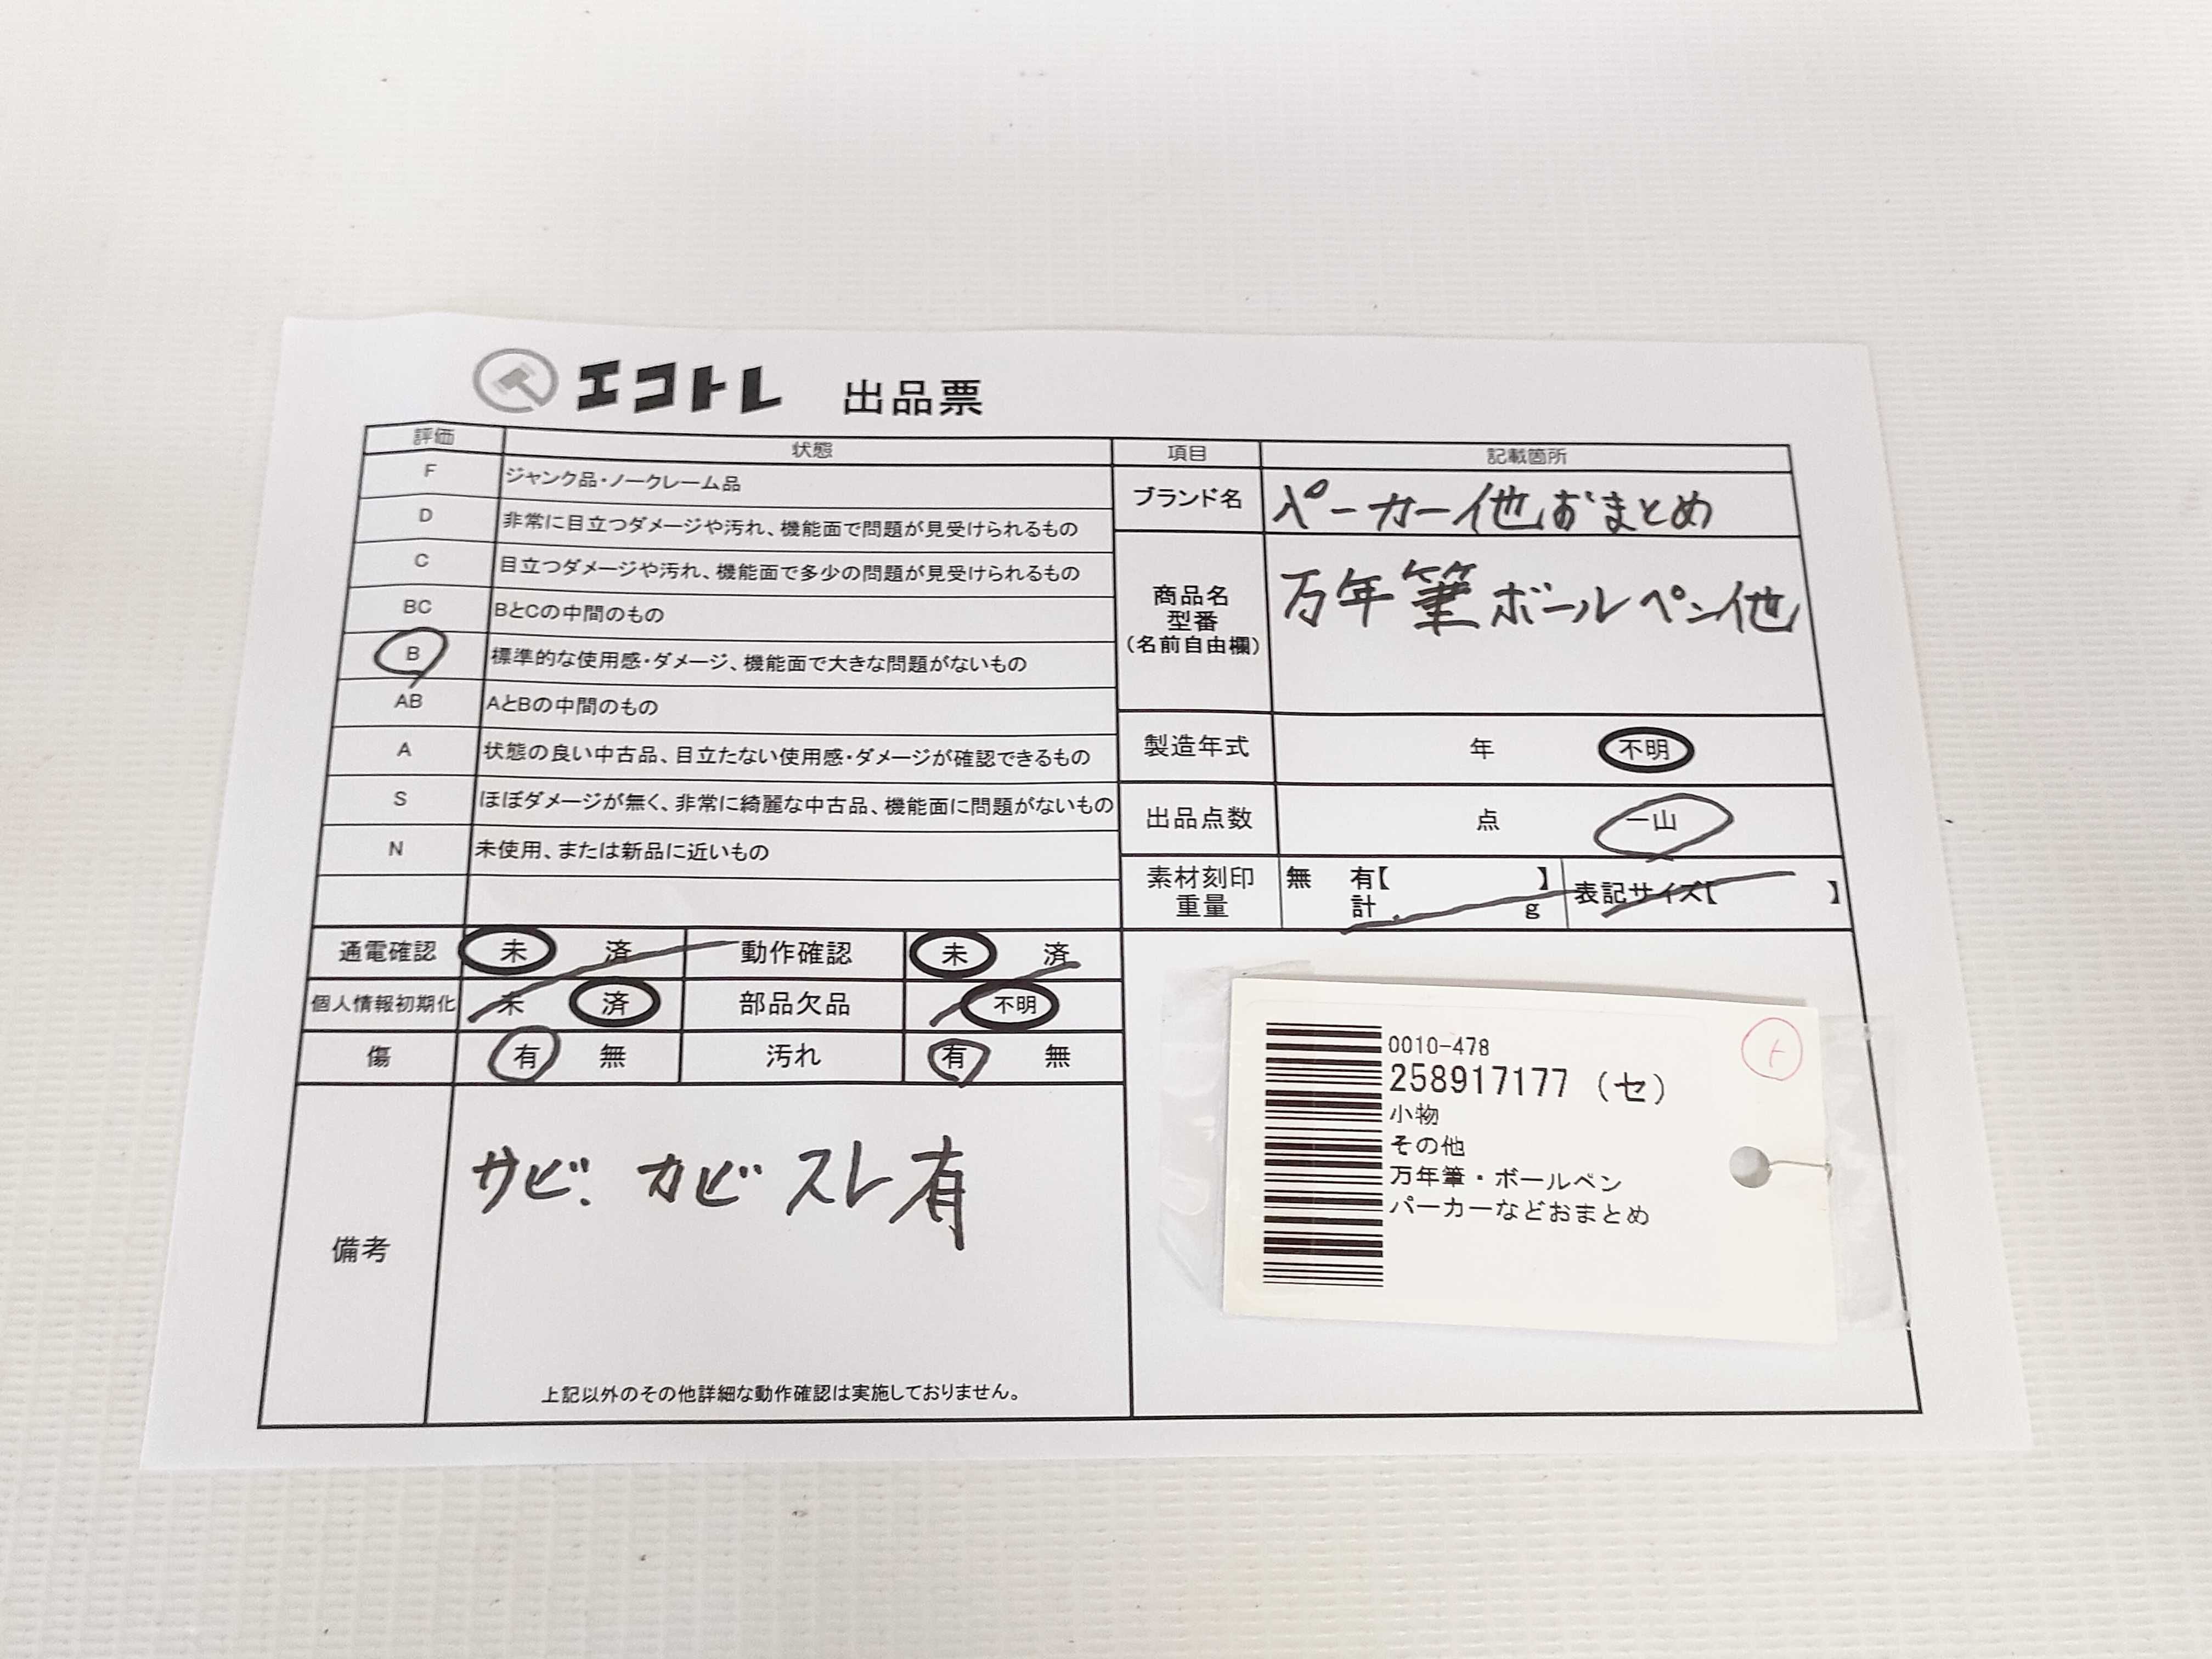 エコトレ 出品票
評価 状態 項目 記載箇所
F ジャンク品・ノークレーム品
D 非常に目立つダメージや汚れ、機能面で問題が見受けられるもの
C 目立つダメージや汚れ、機能面で多少の問題が見受けられるもの
BC BとCの中間のもの
B 標準的な使用感・ダメージ、機能面で大きな問題がないもの
AB AとBの中間のもの
A 状態の良い中古品、目立たない使用感・ダメージが確認できるもの
S ほぼダメージが無く、非常に綺麗な中古品、機能面に問題がないもの
N 未使用、または新品に近いもの
ブランド名 パーカー他おまとめ
商品名
型番
(名前自由欄)
万年筆ボールペン他
製造年式 年 不明
出品点数 点 一山
素材刻印 無 有【 】 表記サイズ【 】
重量 計 g
通電確認 未 済 動作確認 未 済
個人情報初期化 未 済 部品欠品 不明
傷 有 無 汚れ 有 無
備考
サビ、カビ スレ有
上記以外のその他詳細な動作確認は実施しておりません。
0010-478
258917177 (セ)
小物
その他
万年筆・ボールペン
パーカーなどおまとめ